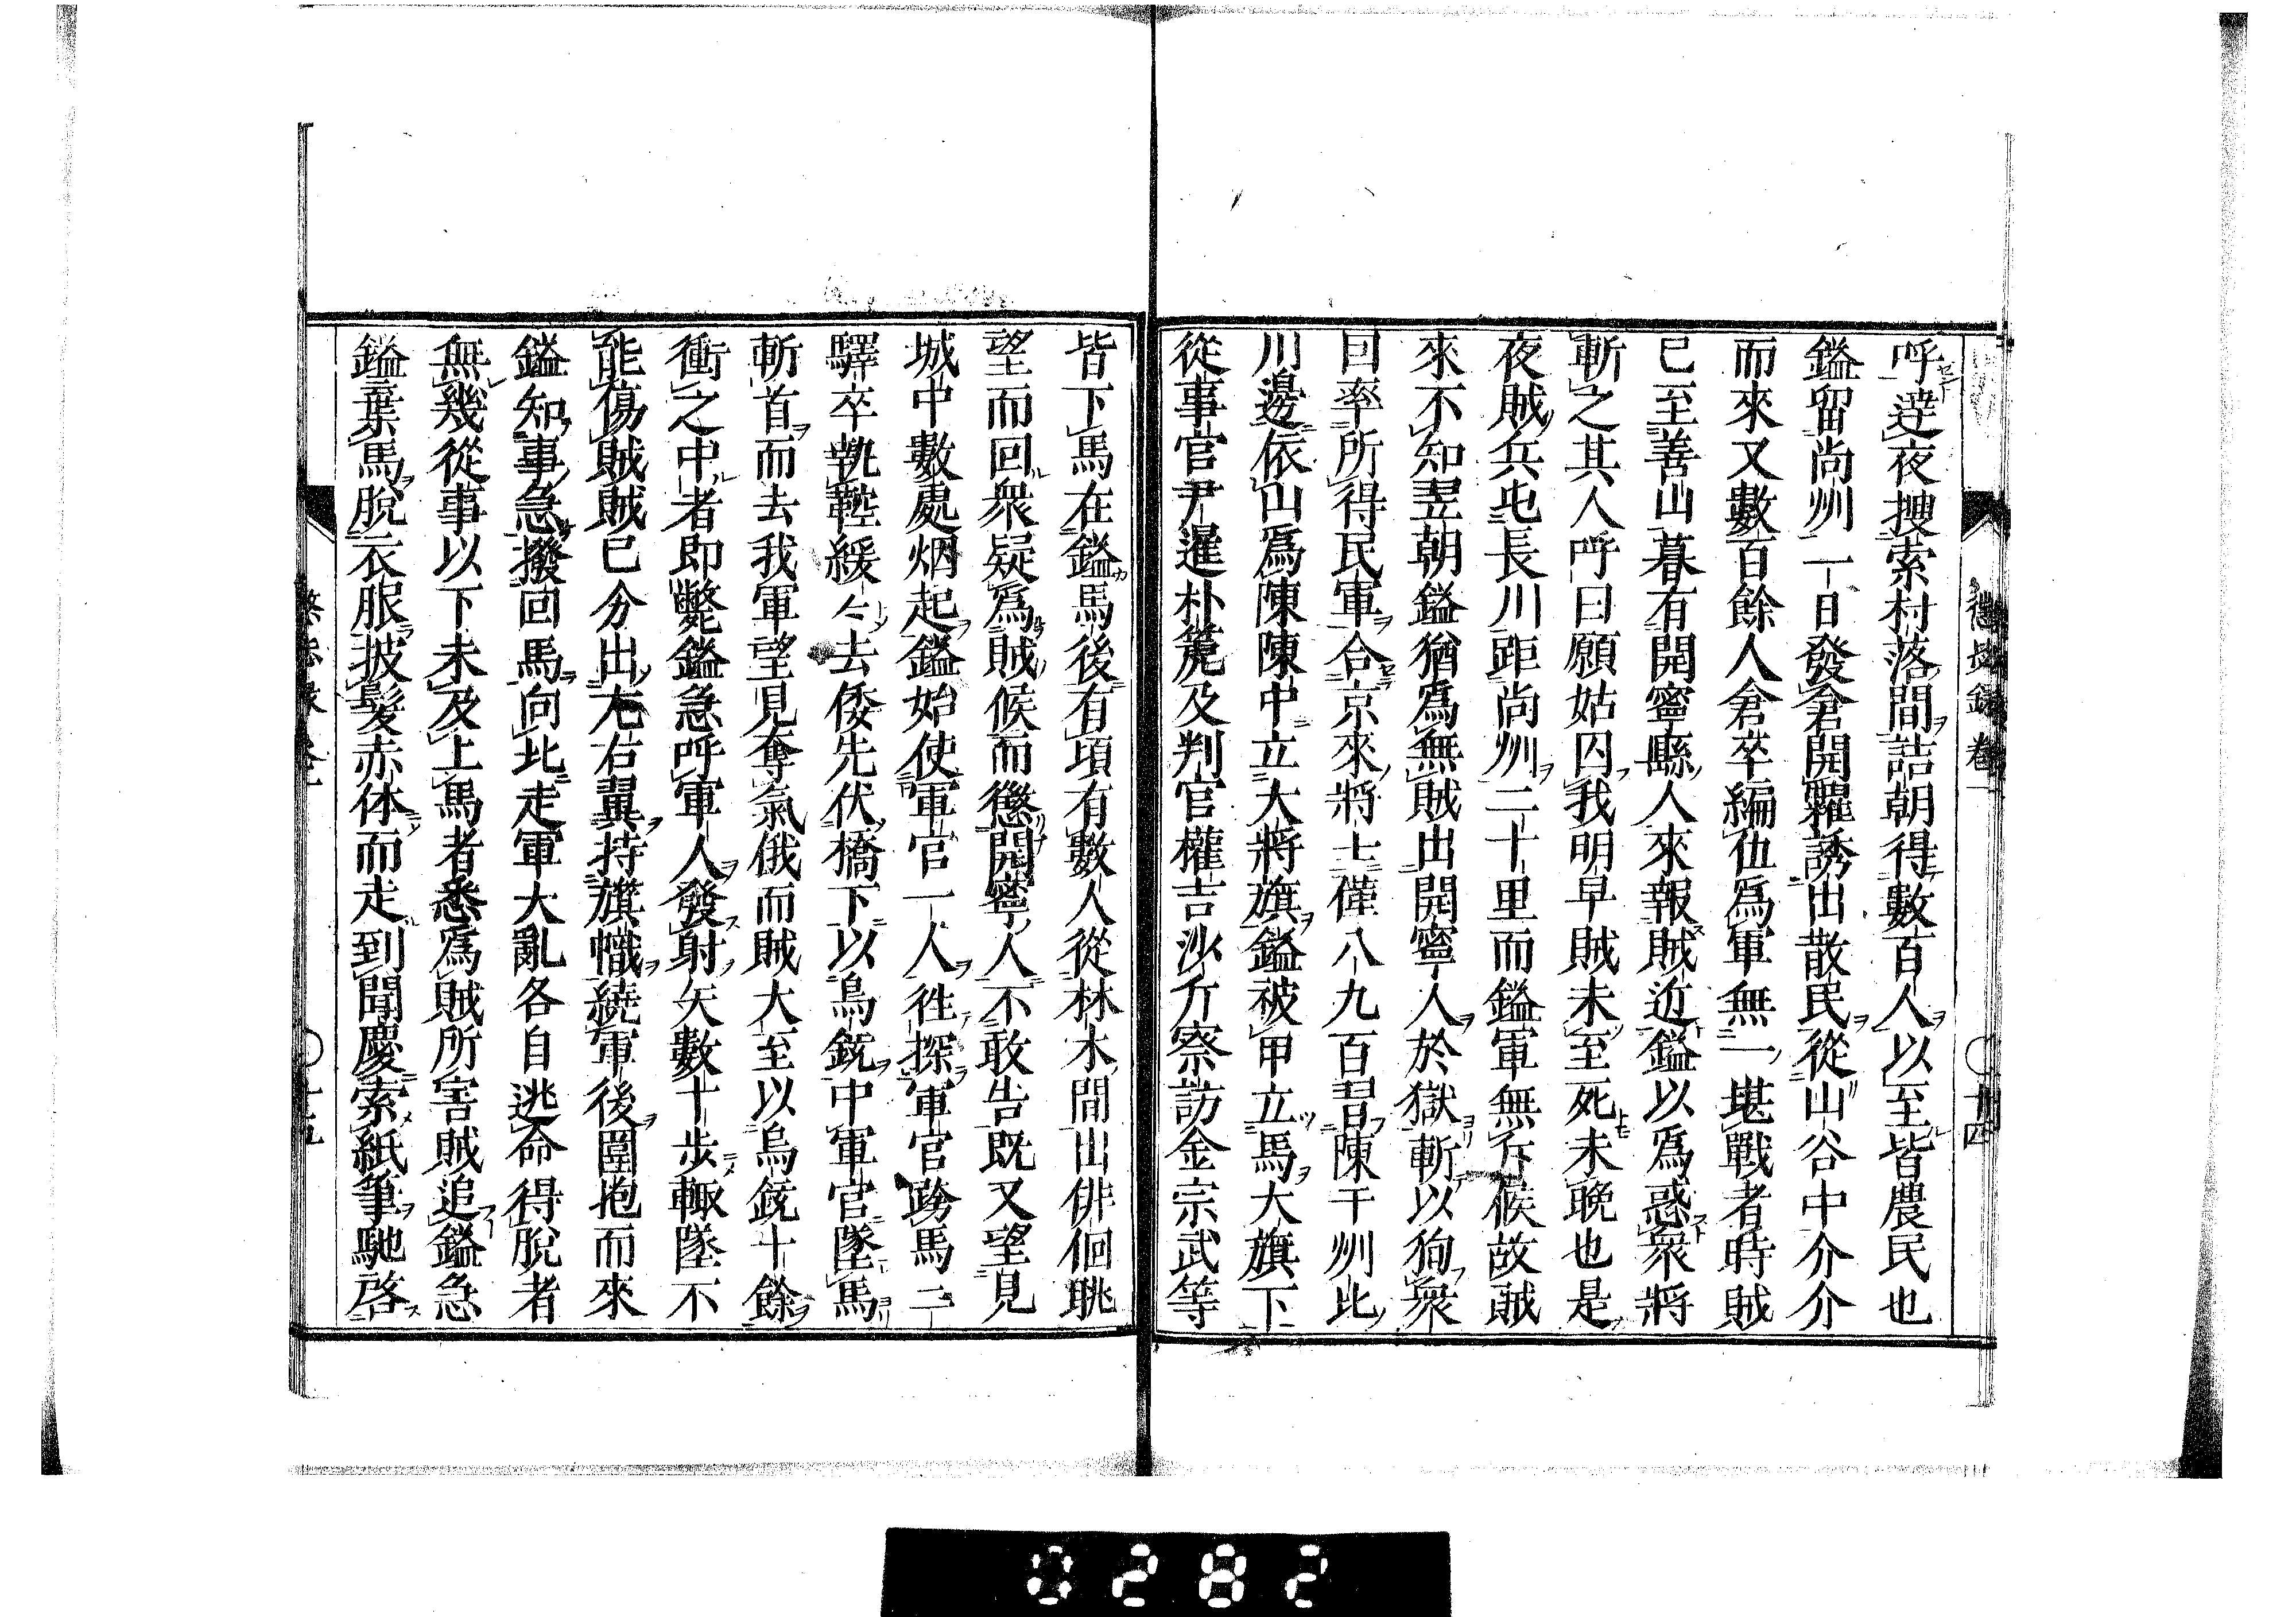 呼達夜搜索村落間詰朝得數百人以至皆農民也
鎰留尚州一日發倉開糶誘出散民從山谷中介介
而來又數百餘人倉卒編伍爲軍無一堪戰者時賊
已至善山暮有開寧縣人來報賊近鎰以爲惑衆將
斬之其人呼曰願姑囚我明早賊未至死未晚也是
夜賊兵屯長川距尚州二十里而鎰軍無斥候故賊
來不知翌朝鎰猶爲無賊出開寧人於獄斬以狥衆
回率所得民軍合京來將士僅八九百習陳于州北
川邊依山爲陳陳中立大將旗鎰被甲立馬大旗下
從事官尹暹朴箎及判官權吉沙斤察訪金宗武等
皆下馬在鎰馬後有頃有數人從林木間出俳佪眺
望而回衆疑爲賊候而懲開寧人不敢告既又望見
城中數處烟起鎰始使軍官一人徃探軍官跨馬二
驛卒執鞚緩々去倭先伏橋下以鳥銃中軍官墜馬
斬首而去我軍望見奪氣俄而賊大至以鳥銃十餘
衝之中者即斃鎰急呼軍人發射矢數十步輙墜不
能傷賊賊已分出左右翼持旗幟繞軍後圍抱而來
鎰知事急撥回馬向北走軍大亂各自逃命得脫者
無幾從事以下未及上馬者悉爲賊所害賊追鎰急
鎰棄馬脫衣服披髮赤体而走到聞慶索紙筆馳啓
懲毖錄 卷一
十四
0282